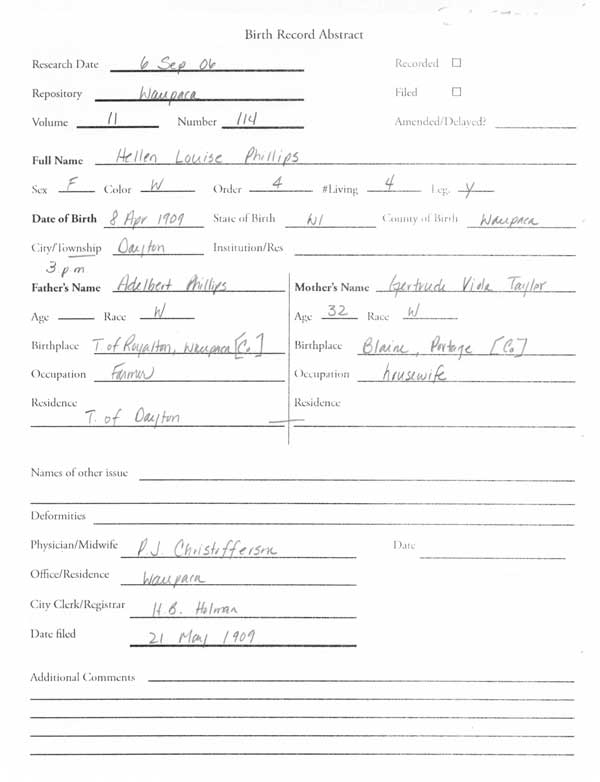 Birth Record Abstract
Research Date 6 Sep 06 Recorded ☐
Repository Waupaca Filed ☐
Volume 11 Number 114 Amended/Delayed?
Full Name Hellen Louise Phillips
Sex F Color W Order 4 #Living 4 Leg. y
Date of Birth 8 Apr 1909 State of Birth WI County of Birth Waupaca
City/Township Dayton Institution/Res
3 pm
Father's Name Adelbert Phillips Mother's Name Gertrude Viola Taylor
Age Race W Age 32 Race W
Birthplace T. of Royalton, Waupaca [Co] Birthplace Blaine, Portage [Co]
Occupation Farmer Occupation housewife
Residence Residence
T. of Dayton
Names of other issue
Deformities
Physician/Midwife P.J. Christofferson Date
Office/Residence Waupaca
City Clerk/Registrar H.B. Holman
Date filed 21 May 1909
Additional Comments